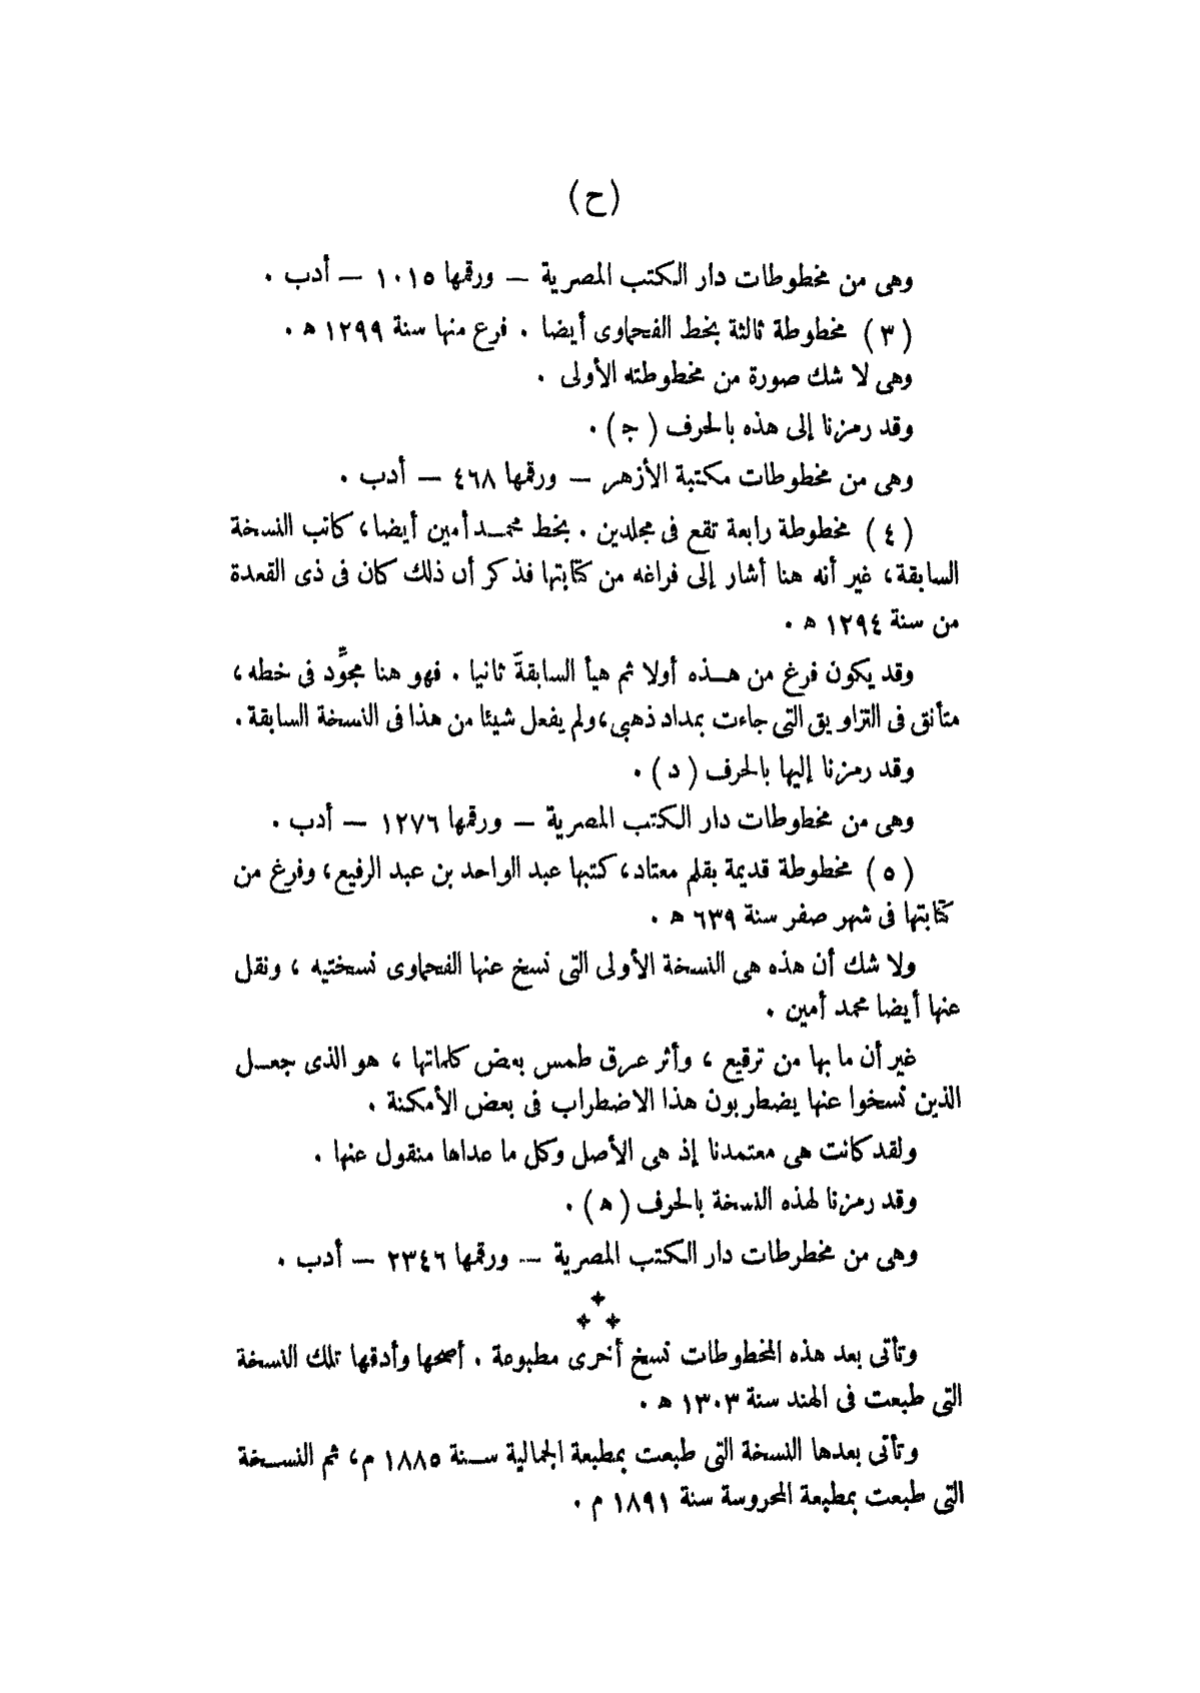 (ح)
وهى من مخطوطات دار الكتب المصرية — ورقمها ١٠١٥ — أدب .
(٣) مخطوطة ثالثة بخط الفحماوى أيضا . فرع منها سنة ١٢٩٩ ه .
وهى لا شك صورة من مخطوطته الأولى .
وقد رمزنا إلى هذه بالحرف (ج) .
وهى من مخطوطات مكتبة الأزهر — ورقمها ٤٦٨ — أدب .
(٤) مخطوطة رابعة تقع فى مجلدين . بخط محمد أمين أيضا، كاتب النسخة
السابقة، غير أنه هنا أشار إلى فراغه من كتابتها فذكر أن ذلك كان فى ذى القعدة
من سنة ١٢٩٤ ه .
وقد يكون فرغ من هذه أولا ثم هيأ السابقةَ ثانيا . فهو هنا مجوِّد فى خطه،
متأنق فى التزاويق التى جاءت بمداد ذهبى، ولم يفعل شيئا من هذا فى النسخة السابقة .
وقد رمزنا إليها بالحرف (د) .
وهى من مخطوطات دار الكتب المصرية — ورقمها ١٢٧٦ — أدب .
(٥) مخطوطة قديمة بقلم معتاد، كتبها عبد الواحد بن عبد الرفيع، وفرغ من
كتابتها فى شهر صفر سنة ٦٣٩ ه .
ولا شك أن هذه هى النسخة الأولى التى نسخ عنها الفحماوى نسختيه ، ونقل
عنها أيضا محمد أمين .
غير أن ما بها من ترقيع ، وأثر عرق طمس بعض كلماتها ، هو الذى جعل
الذين نسخوا عنها يضطربون هذا الاضطراب فى بعض الأمكنة .
ولقد كانت هى معتمدنا إذ هى الأصل وكل ما عداها منقول عنها .
وقد رمزنا لهذه النسخة بالحرف (ه) .
وهى من مخطرطات دار الكتب المصرية — ورقمها ٢٣٤٦ — أدب .
وتأتى بعد هذه المخطوطات نسخ أخرى مطبوعة . أصحها وأدقها تلك النسخة
التى طبعت فى الهند سنة ١٣٠٣ ه .
وتأتى بعدها النسخة التى طبعت بمطبعة الجمالية سنة ١٨٨٥ م، ثم النسخة
التى طبعت بمطبعة المحروسة سنة ١٨٩١ م .